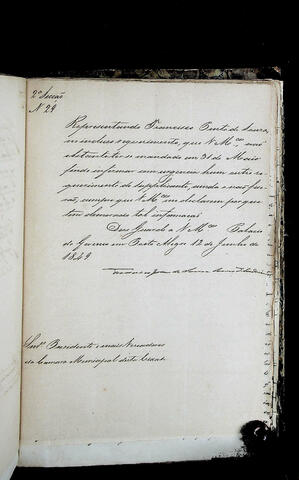 2ª Secção
N 29
Representando Francisco Pinto de Souza,
requerimento, que V Mces não
obstante ter se mandado em 31 de Maio
findo informar com urgencia hum outro re
querimento do supplicante, ainda o não fize
rão, cumpre que V Mces me declarem porque
tem demorado tal informação
Deos Guarde a V Mces Palacio
do Governo em Porto Alegre 12 de Junho de
1849
Senres Presidente e mais Vereadores
da Camara Municipal desta Cidade